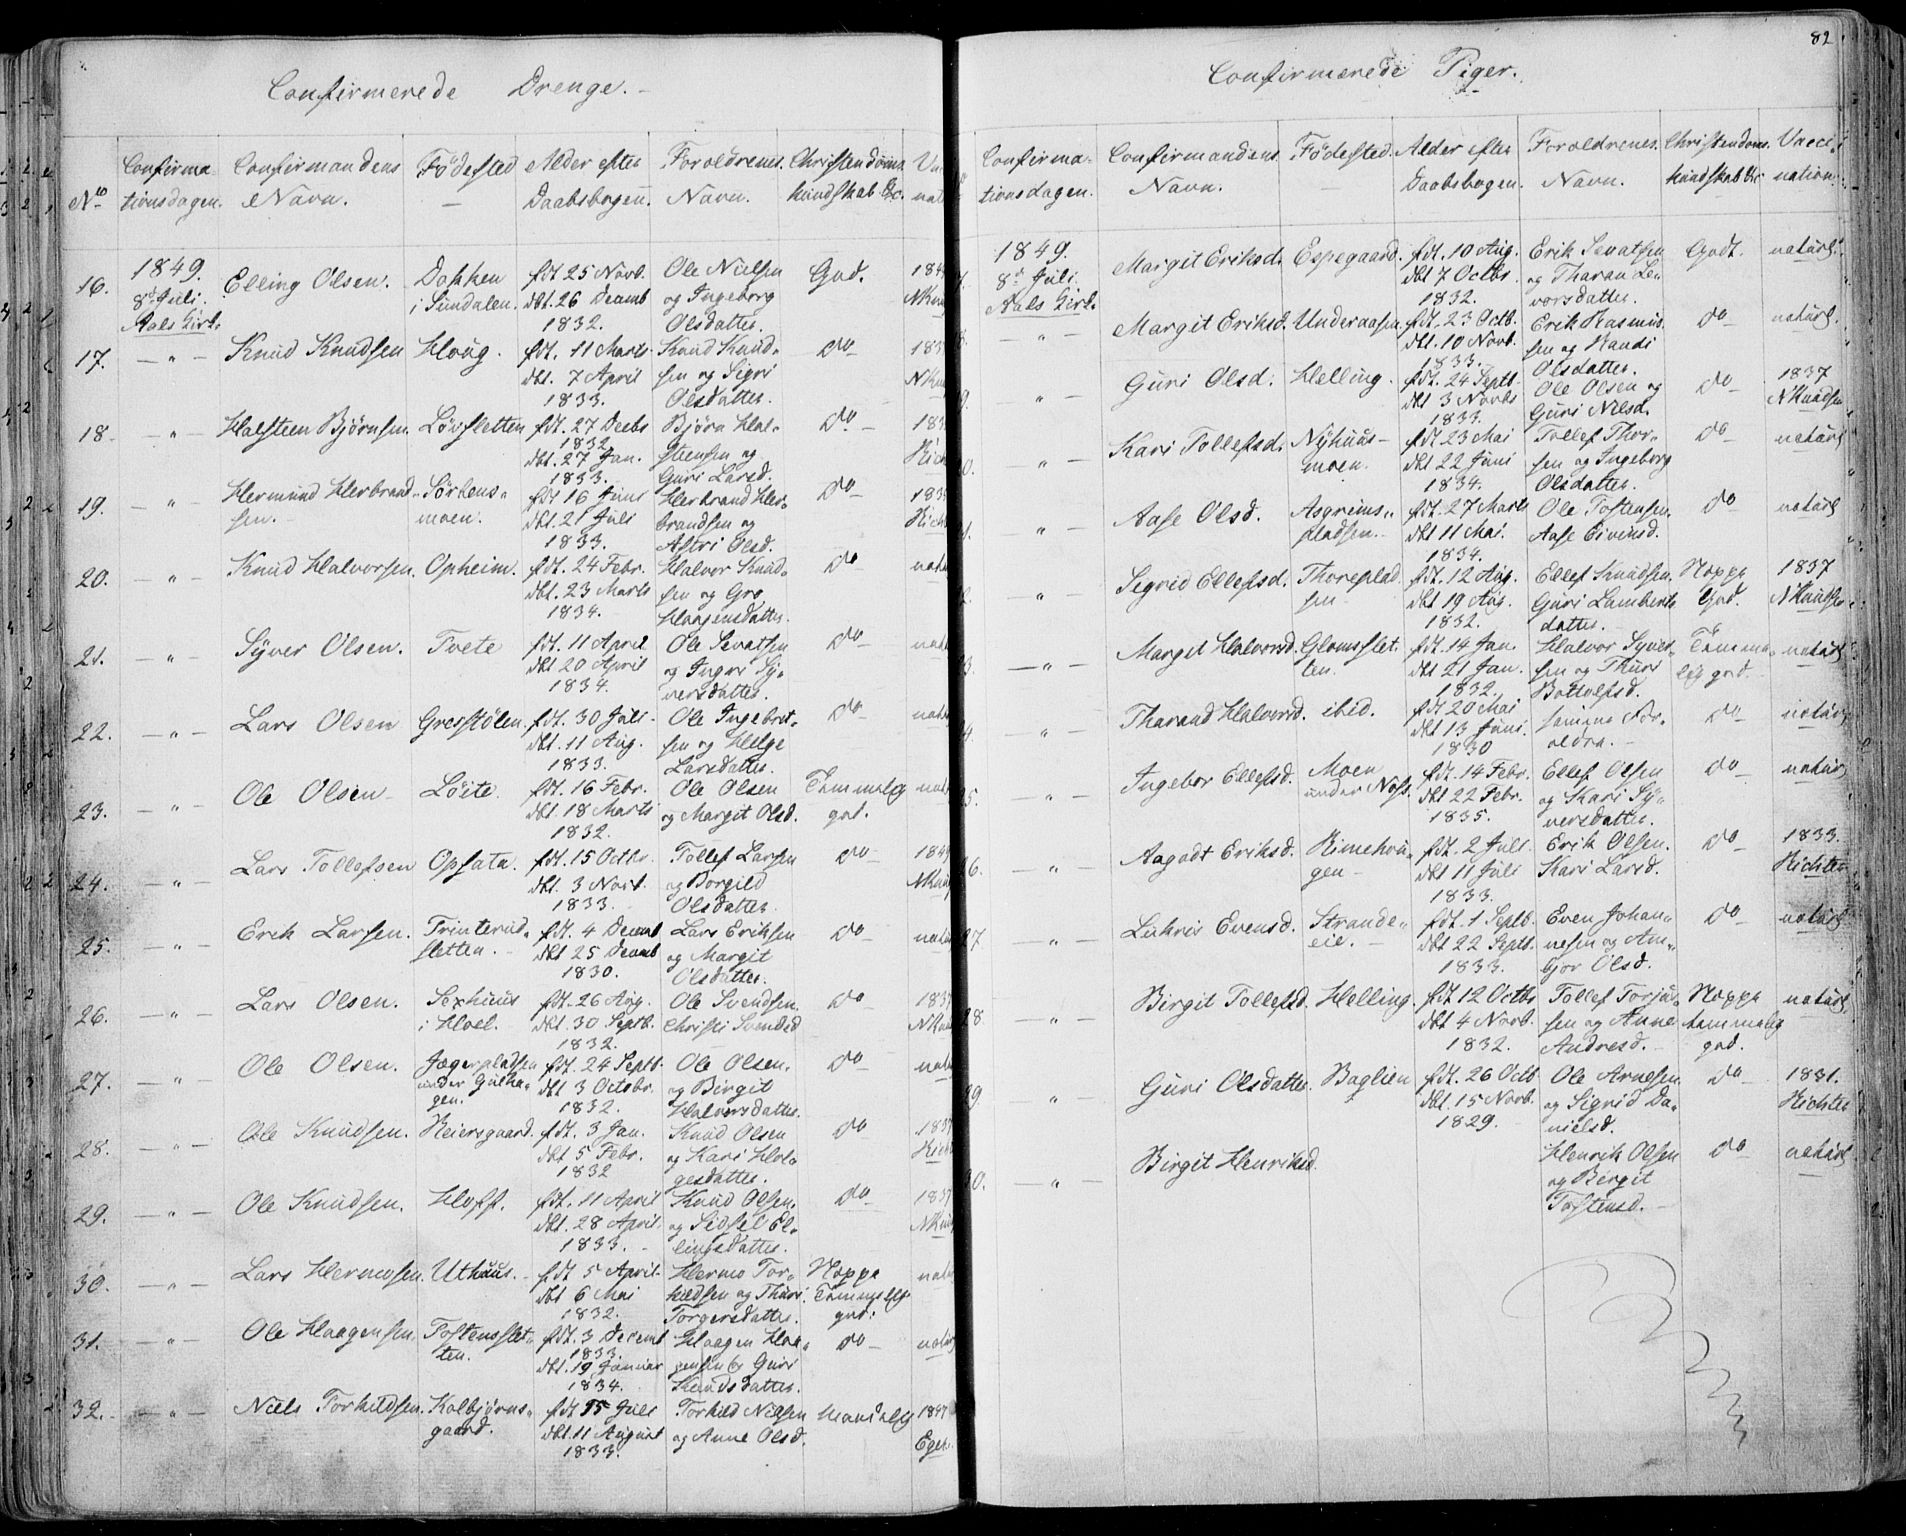 Confirmerede Drenge.
No
Confirma-
tionsdagen.
Confirmandens
Navn.
Fødested
Alder efter
Daabsbogen.
Forældrenes
Navn.
Christendoms
kundskab &c.
16.
1849.
8de Juli.
Aals Kirk.
Elling Olsen.
Dokken
i Sundalen.
fdt. 25 Novb.
dbt. 26 Decemb
1832.
Ole Nielsen
og Ingeborg
Olsdatter.
God.
17.
— " —
Knud Knudsen
Houg.
fdt. 11 Marts
dbt. 7 April
1833.
Knud Knud-
sen og Sigri
Olsdatter.
do
18.
— " —
Halsteen Bjørnsen.
Løvsletten
fdt. 27 Decbr
1832
dbt. 27 Jan.
1833.
Bjørn Hal-
steensen og
Guri Larsd.
do
19.
— " —
Hermund Herbrand-
sen.
moen.
fdt 16 Juni
dbt. 21 Juli
1833.
Herbrand Her-
brandsen og
Astri Olsd.
do
20.
— " —
Knud Halvorsen.
Opheim.
fdt. 24 Febr.
dbt. 23 Marts
1834.
Halvor Knud-
sen og Gro
Haagensdatter.
do
21.
— " —
Syver Olsen.
Tvete
fdt. 11 April
dbt 20 April
1834.
Ole Sevatsen
og Ingri Sy-
versdatter.
do
22.
— " —
Lars Olsen
Gresstølen.
fdt. 30 Juli
dbt. 11 Aug.
1833.
Ole Ingebret-
sen og Helge
Larsdatter.
do
23.
Ole Olsen
Løite.
fdt. 16 Febr.
dbt. 18 Marts
1832.
Ole Olsen
og Margit Olsd.
Temmelig
god.
24.
— " —
Lars Tollefsen
Opsata.
fdt. 15 Octbr.
dbt. 3 Novb.
1833.
Tollef Larsen
og Borgild
Olsdatter.
do
25.
— " —
Erik Larsen.
sletten.
fdt. 4 Decemb
dbt 25 Decemb
1830.
Lars Eriksen
og Margit
Olsdatter.
do
26.
— " —
Lars Olsen.
i Hoel.
fdt. 26 Aug.
dbt. 30 Septb.
1832.
Ole Svendsen.
Christi Svendsd
do
27.
— " —
Ole Olsen.
Jægerpladsen
under Gulha-
gen.
fdt. 24 Septb.
dbt 3 Octobr.
1832.
Ole Olsen.
og Birgit
Halvorsdatter.
do
28.
— " —
Ole Knudsen.
Reiersgaard.
fdt. 3 Jan.
dbt 5 Febr.
1832
Knud Olsen
og Kari Hel-
gesdatter.
do
29.
— " —
Ole Knudsen.
Hoff.
fdt. 11 April
dbt. 28 April.
1833.
Knud Olsen.
og Sidsel El-
lingsdatter.
do
30.
— " —
Lars Hermosen.
Uthuus.
fdt 5 April
dbt 6 Mai
1832.
Hermo Tor-
kildsen og Thuri
Torgersdatter.
Noppe
Temmelig
god.
31.
— " —
Ole Haagensen.
Tostensslet-
ten.
fdt. 3 Decemb
1833.
dbt. 19 Januar
1834.
Haagen Haa-
gensen og Guri
Knudsdatter.
do
32.
— " —
Niels Torkildsen.
Kolbjørns-
gaard.
fdt 15 Juli
dbt. 11 August
1833.
Torkild Nielsen
og Anne Olsd.
Maadelig
82
Confirmerede Piger.
Confirma-
tionsdagen.
Confirmandens
Navn.
Fødested.
Alder efter
Daabsbogen.
Forældrenes.
Navn.
Christendoms.
kundskab &c
Vacci-
nation.
1849.
8de Juli.
Aals Kirk.
Margit Eriksd.
Espegaard.
fdt. 10 Aug.
dbt 7 Octbr
1832.
Erik Sevatsen
og Tharan Le-
vorsdatter.
Godt.
naturl.
— " —
Margit Eriksd.
Underaasen
fdt. 23 Octb.
dbt. 10 Novb.
1833.
Erik Rasmus-
sen og Randi
Olsdatter.
do
naturl.
— " —
Guri Olsd.
Helling.
fdt. 24 Septb.
dbt 3 Novbr
1833.
Ole Olsen og
Guri Nilsd.
do
1837
N Knudsen
— " —
Kari Tollefsd.
Nyhuus-
moen.
fdt 23 Mai
dbt. 22 Juni
1834.
Tollef Thor-
sen og Ingeborg
Olsdatter.
do
naturl
— " —
Aase Olsd.
Asgrims-
pladsen.
fdt. 27 Marts
dbt 11 Mai.
1834.
Ole Tostensen.
Aase Eivinsd.
do
naturl
— " —
Segrid Ellefsd.
Thoreplad-
sen
fdt. 12 Aug.
dbt 19 Aug.
1832.
Ellef Knudsen.
Guri Lamberts
datter.
Noppe
God.
1837
N Knudsen
— " —
Margit Halvorsd.
Glomsslet-
ten.
fdt. 14 Jan.
dbt 21 Jan.
1832.
Halvor Syver-
sen og Thuri
Bottolfsd.
Temme-
lig god.
naturl
— " —
Tharand Halvorsd.
ibid.
fdt 20 Mai
dbt 13 Juni.
1830
samme For-
ældre.
do
naturl
— " —
Ingebor Ellefsd.
Moen
fdt. 14 Febr.
dbt 22 Febr.
1835.
Ellef Olsen
og Kari Sy-
versdatter.
do
naturl
— " —
Aagodt Eriksd.
Rimehou-
gen
fdt. 2 Juli
dbt 11 Juli
1833.
Erik Olsen.
Kari Larsd.
do
1833.
Richter
— " —
Evensd.
Strande-
eie.
fdt. 1 Septb.
dbt 22 Septb.
1833.
Even Johan-
nesen og Am-
bjor Olsd.
do
naturl
— " —
Birgit Tollefsd.
Helling.
fdt 12 Octbr
dbt 4 Novb.
1832.
Tollef Torju-
sen og Anne
Andresd.
Noppe
temmelig
god.
naturl
— " —
Guri Olsdatter
Baglien
fdt. 26 Octb
dbt. 15 Novb.
1829.
Ole Arnesen
og Sigrid Da-
nielsd.
do
1831.
Richter
— " —
Birgit Henriksd.
Henrik Olsen
og Birgit
Tostensd.
do
naturl